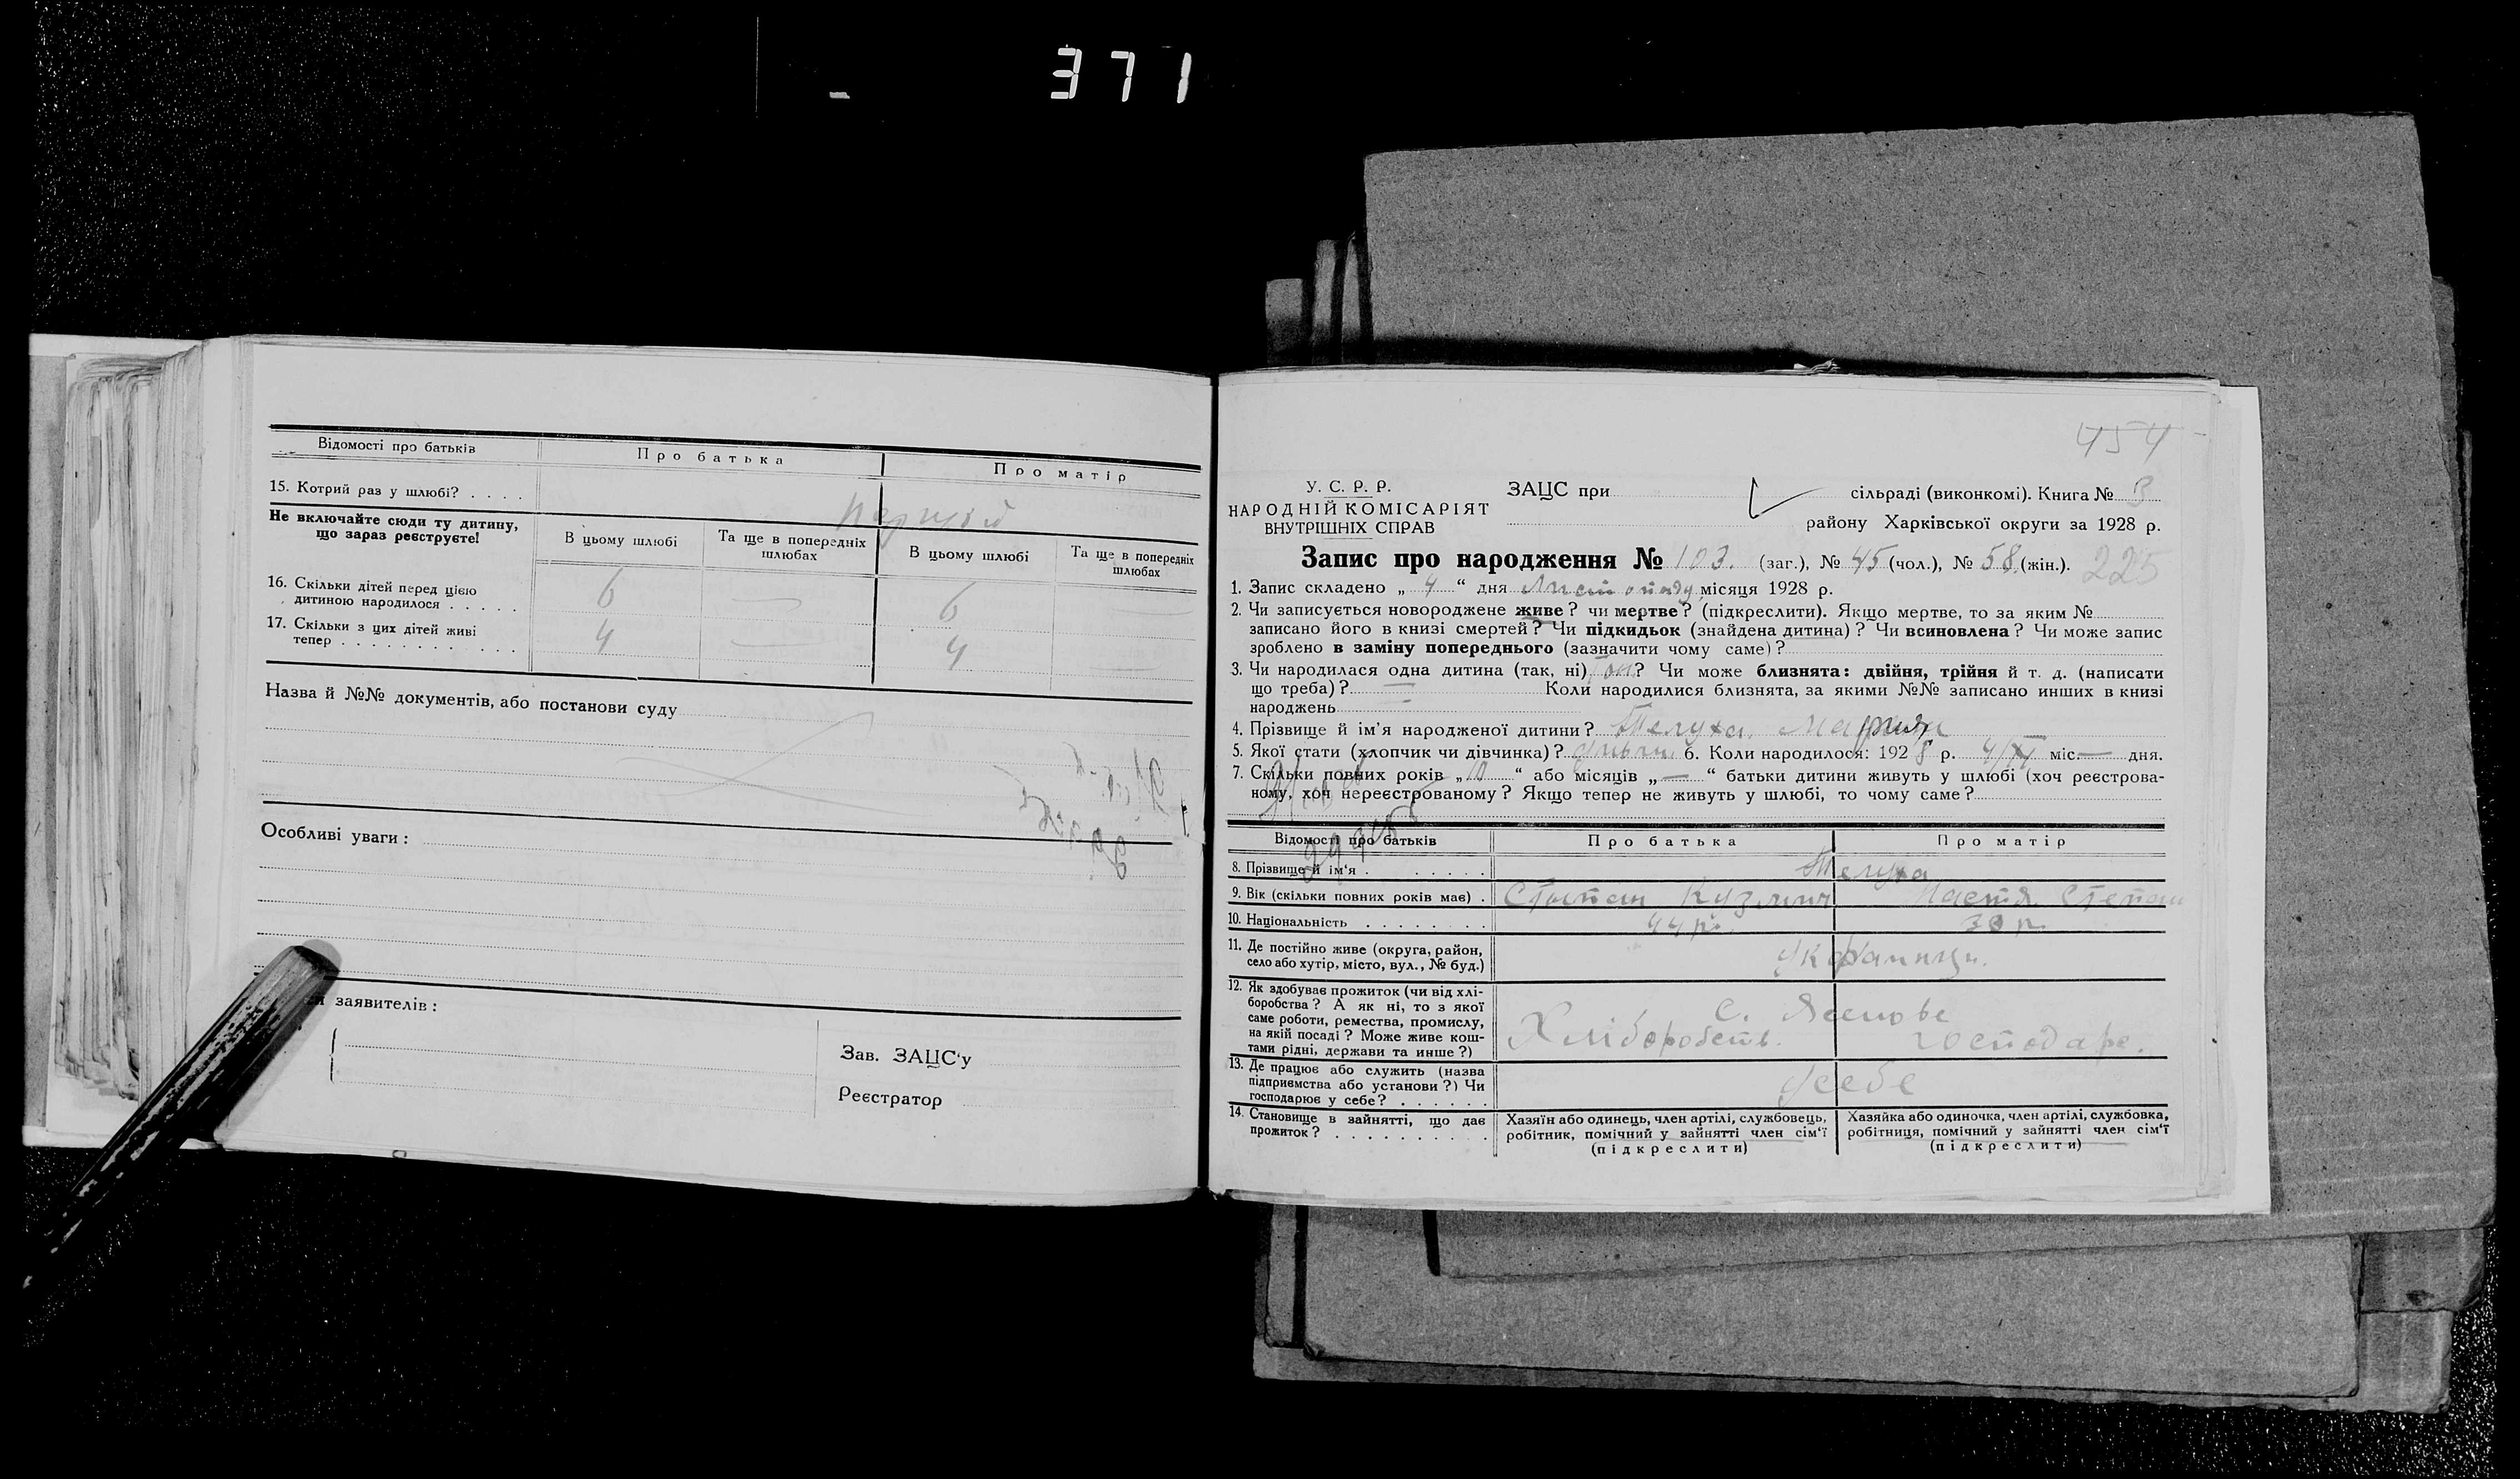 371
Відомості про батьків
Про батька
Про матір
15. Котрий раз у шлюбі? . . . .
Не включайте сюди ту дитину,
що зараз реєструєте!
В цьому шлюбі
Та ще в попередніх
шлюбах
В цьому шлюбі
Та ще в попередніх
шлюбах
16. Скільки дітей перед цією
дитиною народилося . . . . .
6 — 6 —
17. Скільки з цих дітей живі
тепер . . . . . . . . . . . .
4 — 4 —
Назва й №№ документів, або постанови суду
Особливі уваги :
заявителів :
Зав. ЗАЦС'у
Реєстратор
454
У. С. Р. Р.
НАРОДНІЙ КОМІСАРІЯТ
ВНУТРІШНІХ СПРАВ
ЗАЦС при
сільраді (виконкомі). Книга № 3
району Харківської округи за 1928 р.
Запис про народження № 103. (заг.), № 45 (чол.), № 58 (жін.). 225
1. Запис складено „ 4 “ дня Листопаду місяця 1928 р.
2. Чи записується новороджене живе? чи мертве? (підкреслити). Якщо мертве, то за яким №
записано його в книзі смертей? Чи підкидьок (знайдена дитина)? Чи всиновлена? Чи може запис
зроблено в заміну попереднього (зазначити чому саме)?
3. Чи народилася одна дитина (так, ні) ? Чи може близнята: двійня, трійня й т. д. (написати
що треба)? — Коли народилися близнята, за якими №№ записано инших в книзі
народжень
4. Прізвище й ім'я народженої дитини? Телуха Мария
5. Якої стати (хлопчик чи дівчинка)? 6. Коли народилося: 1928 р. 4/XI міс. — дня.
7. Скільки повних років „ 10 “ або місяців „ — “ батьки дитини живуть у шлюбі (хоч реєстрова-
ному, хоч нереєстрованому? Якщо тепер не живуть у шлюбі, то чому саме?
Відомості про батьків
Про батька
Про матір
8. Прізвище й ім'я . . . . . . .
Телуха
9. Вік (скільки повних років має) .
Кузмич Настя Степан
10. Національність . . . . . . . .
44 р. 38 р.
11. Де постійно живе (округа, район,
село або хутір, місто, вул., № буд.)
12. Як здобуває прожиток (чи від хлі-
боробства? А як ні, то з якої
саме роботи, ремества, промислу,
на якій посаді? Може живе кош-
тами рідні, держави та инше?)
Хліборобств. господарс.
13. Де працює або служить (назва
підприємства або установи?) Чи
господарює у себе? . . . . . .
у себе
14. Становище в зайнятті, що дає
прожиток? . . . . . . . . . .
Хазяїн або одинець, член артілі, службовець,
робітник, помічний у зайнятті член сім'ї
(підкреслити)
Хазяйка або одиночка, член артілі, службовка,
робітниця, помічний у зайнятті член сім'ї
(підкреслити)